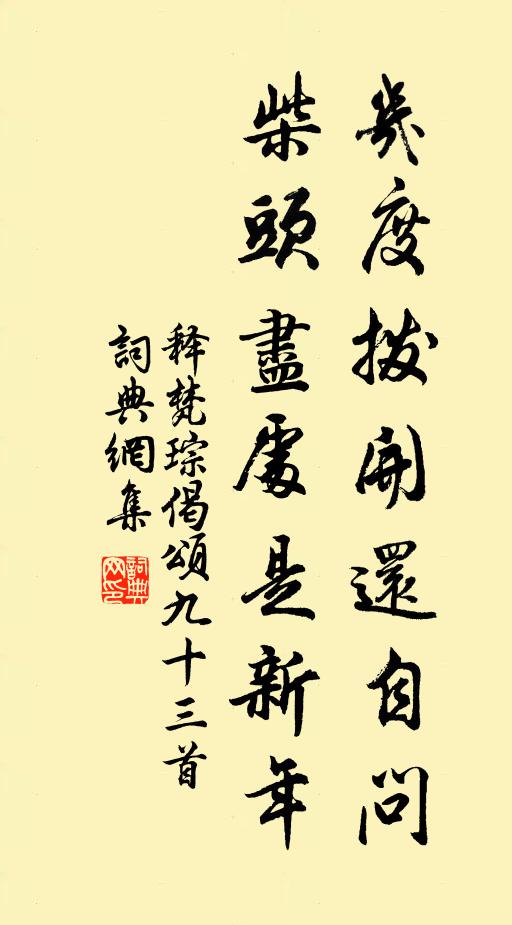 幾度拨開還自問
柴頭盡處是新年
释梵琮偈頌九十三首
詞典網集
詞典网印